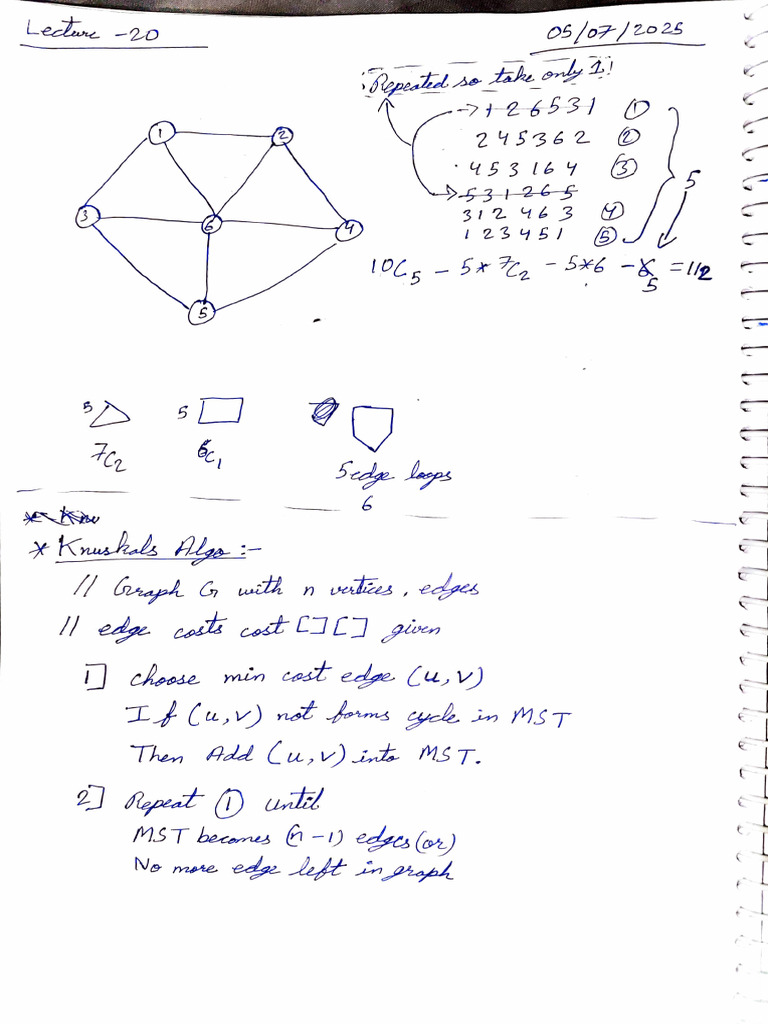 Lecture -20
05/07/2025
Repeated so take only 1!
1 2 6 5 3 1 ①
2 4 5 3 6 2 ②
4 5 3 1 6 4 ③
5 3 1 2 6 5
3 1 2 4 6 3 ④
1 2 3 4 5 1 ⑤
5
10C5 - 5* 7C2 - 5*6 - 6 = 112
5
1
2
3
6
4
5
5
5
7C2
6C1
5 edge loops
6
* Knu
* Knuskals Algo :-
// Graph G with n vertices, edges
// edge costs cost [ ] [ ] given
1] choose min cost edge (u,v)
If (u,v) not forms cycle in MST
Then Add (u,v) into MST.
2] Repeat ① until
MST becomes (n-1) edges (or)
No more edge left in graph